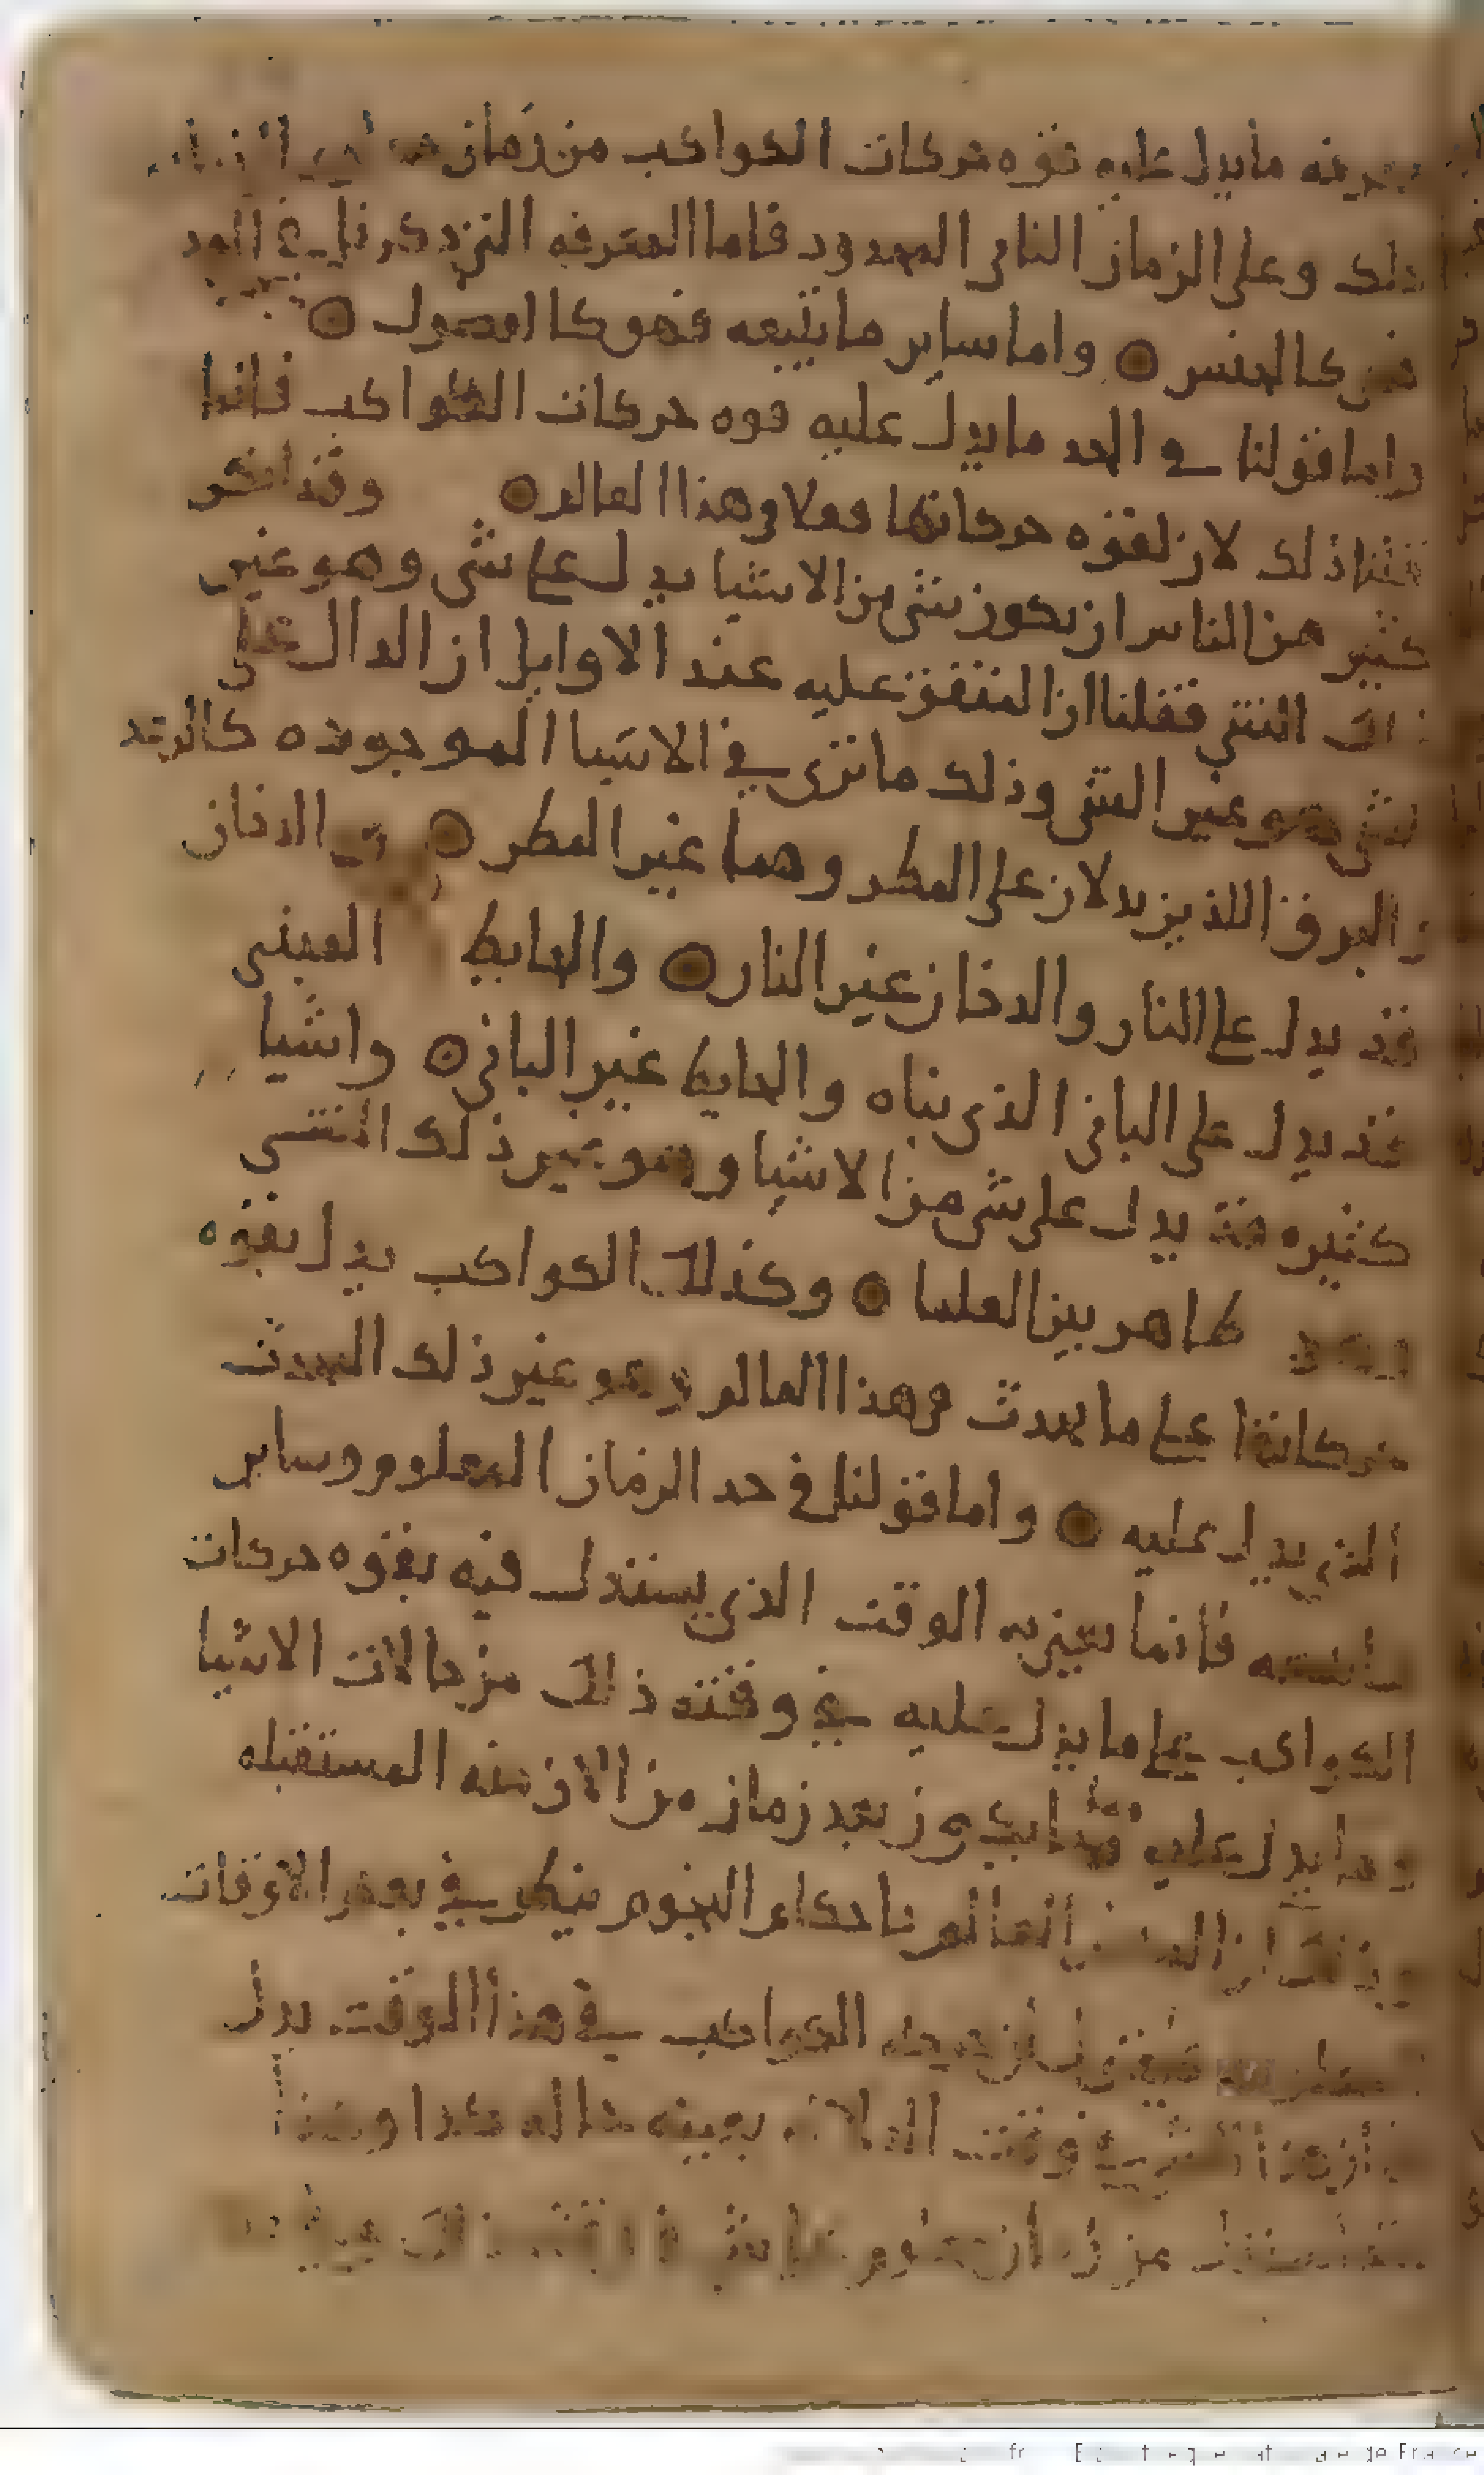 معرفه ما يدل عليه قوه حركات الكواكب من زمان
ذلك وعلى الزمان الثانى المحدود فاما المعرفه التى ذكرناها فى الحد
فهى كالجنس ۝ واما ساير ما يتبعه فهو كالفصول ۝
واما قولنا فى الحد ما يدل عليه قوه حركات الكواكب فانما
قلنا ذلك لان لقوه حركاتها فعلا فى هذا العالم ۝ وقد انكر
كثير من الناس ان يكون شى من الاشيا يدل على شى وهو غير
ذلك الشى فقلنا ان المتفق عليه عند الاوايل ان الدال على
شى هو غير الشى وذلك ما نرى فى الاشيا الموجوده كالرعد
والبرق اللذين يدلان على المطر وهما غير المطر ۝ والدخان
قد يدل على النار والدخان غير النار ۝ والحايط المبنى
قد يدل على البانى الذى بناه والحايط غير البانى ۝ واشيا
كثيره قد يدل على شى من الاشيا وهو غير ذلك الشى
وهذا ظاهر بين العلما ۝ وكذلك الكواكب يدل بقوه
حركاتها على ما يحدث فى هذا العالم وهو غير ذلك الحدث
الذى يدل عليه ۝ واما قولنا فى حد الزمان المعلوم وساير
فانما نعنى به الوقت الذى يستدل فيه بقوه حركات
الكواكب على ما يدل عليه فى وقته ذلك من حالات الاشيا
وما يدل عليه مما يكون بعد زمان من الازمنه المستقبله
وذلك ان العالم باحكام النجوم ينظر فى بعض الاوقات
فيقول ان الكواكب فى هذا الوقت يدل
ان هذا الشى فى وقت بعينه حاله كذا وكذا